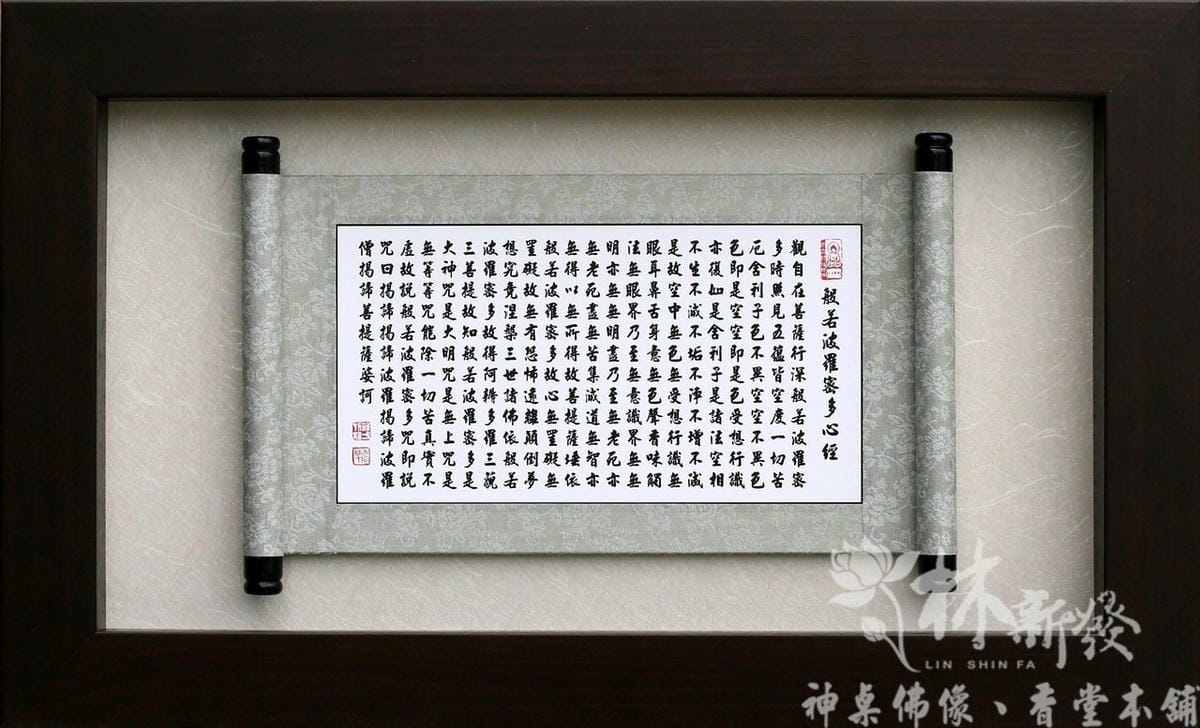 般若波羅蜜多心經
觀自在菩薩行深般若波羅蜜
多時照見五蘊皆空度一切苦
厄舍利子色不異空空不異色
色即是空空即是色受想行識
亦復如是舍利子是諸法空相
不生不滅不垢不淨不增不減
是故空中無色無受想行識無
眼耳鼻舌身意無色聲香味觸
法無眼界乃至無意識界無無
明亦無無明盡乃至無老死亦
無老死盡無苦集滅道無智亦
無得以無所得故菩提薩埵依
般若波羅蜜多故心無罣礙無
罣礙故無有恐怖遠離顛倒夢
想究竟涅槃三世諸佛依般若
波羅蜜多故得阿耨多羅三藐
三菩提故知般若波羅蜜多是
大神咒是大明咒是無上咒是
無等等咒能除一切苦真實不
虛故說般若波羅蜜多咒即說
咒曰揭諦揭諦波羅揭諦波羅
僧揭諦菩提薩婆訶
林新發
LIN SHIN FA
神桌佛像、香堂本舖